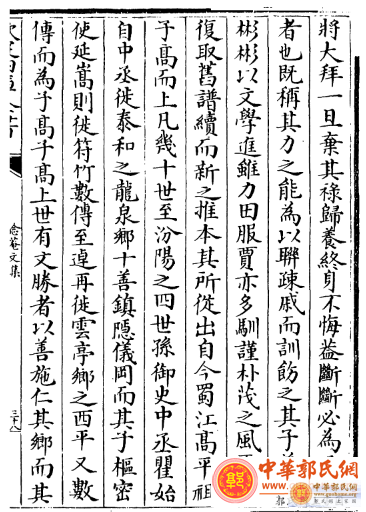 將大拜一旦棄其祿歸養終身不悔益斷斷必為
者也既稱其力之能為以聯疎戚而訓飭之其子
彬彬以文學進雖力田服賈亦多馴謹朴茂之風
復取舊譜續而新之推本其所從出自今蜀江髙平祖
子髙而上凡幾十世至汾陽之四世孫御史中丞瞿始
自中丞徙泰和之龍泉鄉十善鎮隱儀岡而其子樞密
使延嵩則徙符竹數傳至逴再徙雲亭鄉之西平又數
傳而為子髙子髙上世有文勝者以善施仁其鄉而其
念菴文集
三十八
中華郭氏網
www.guoshi.org.cn